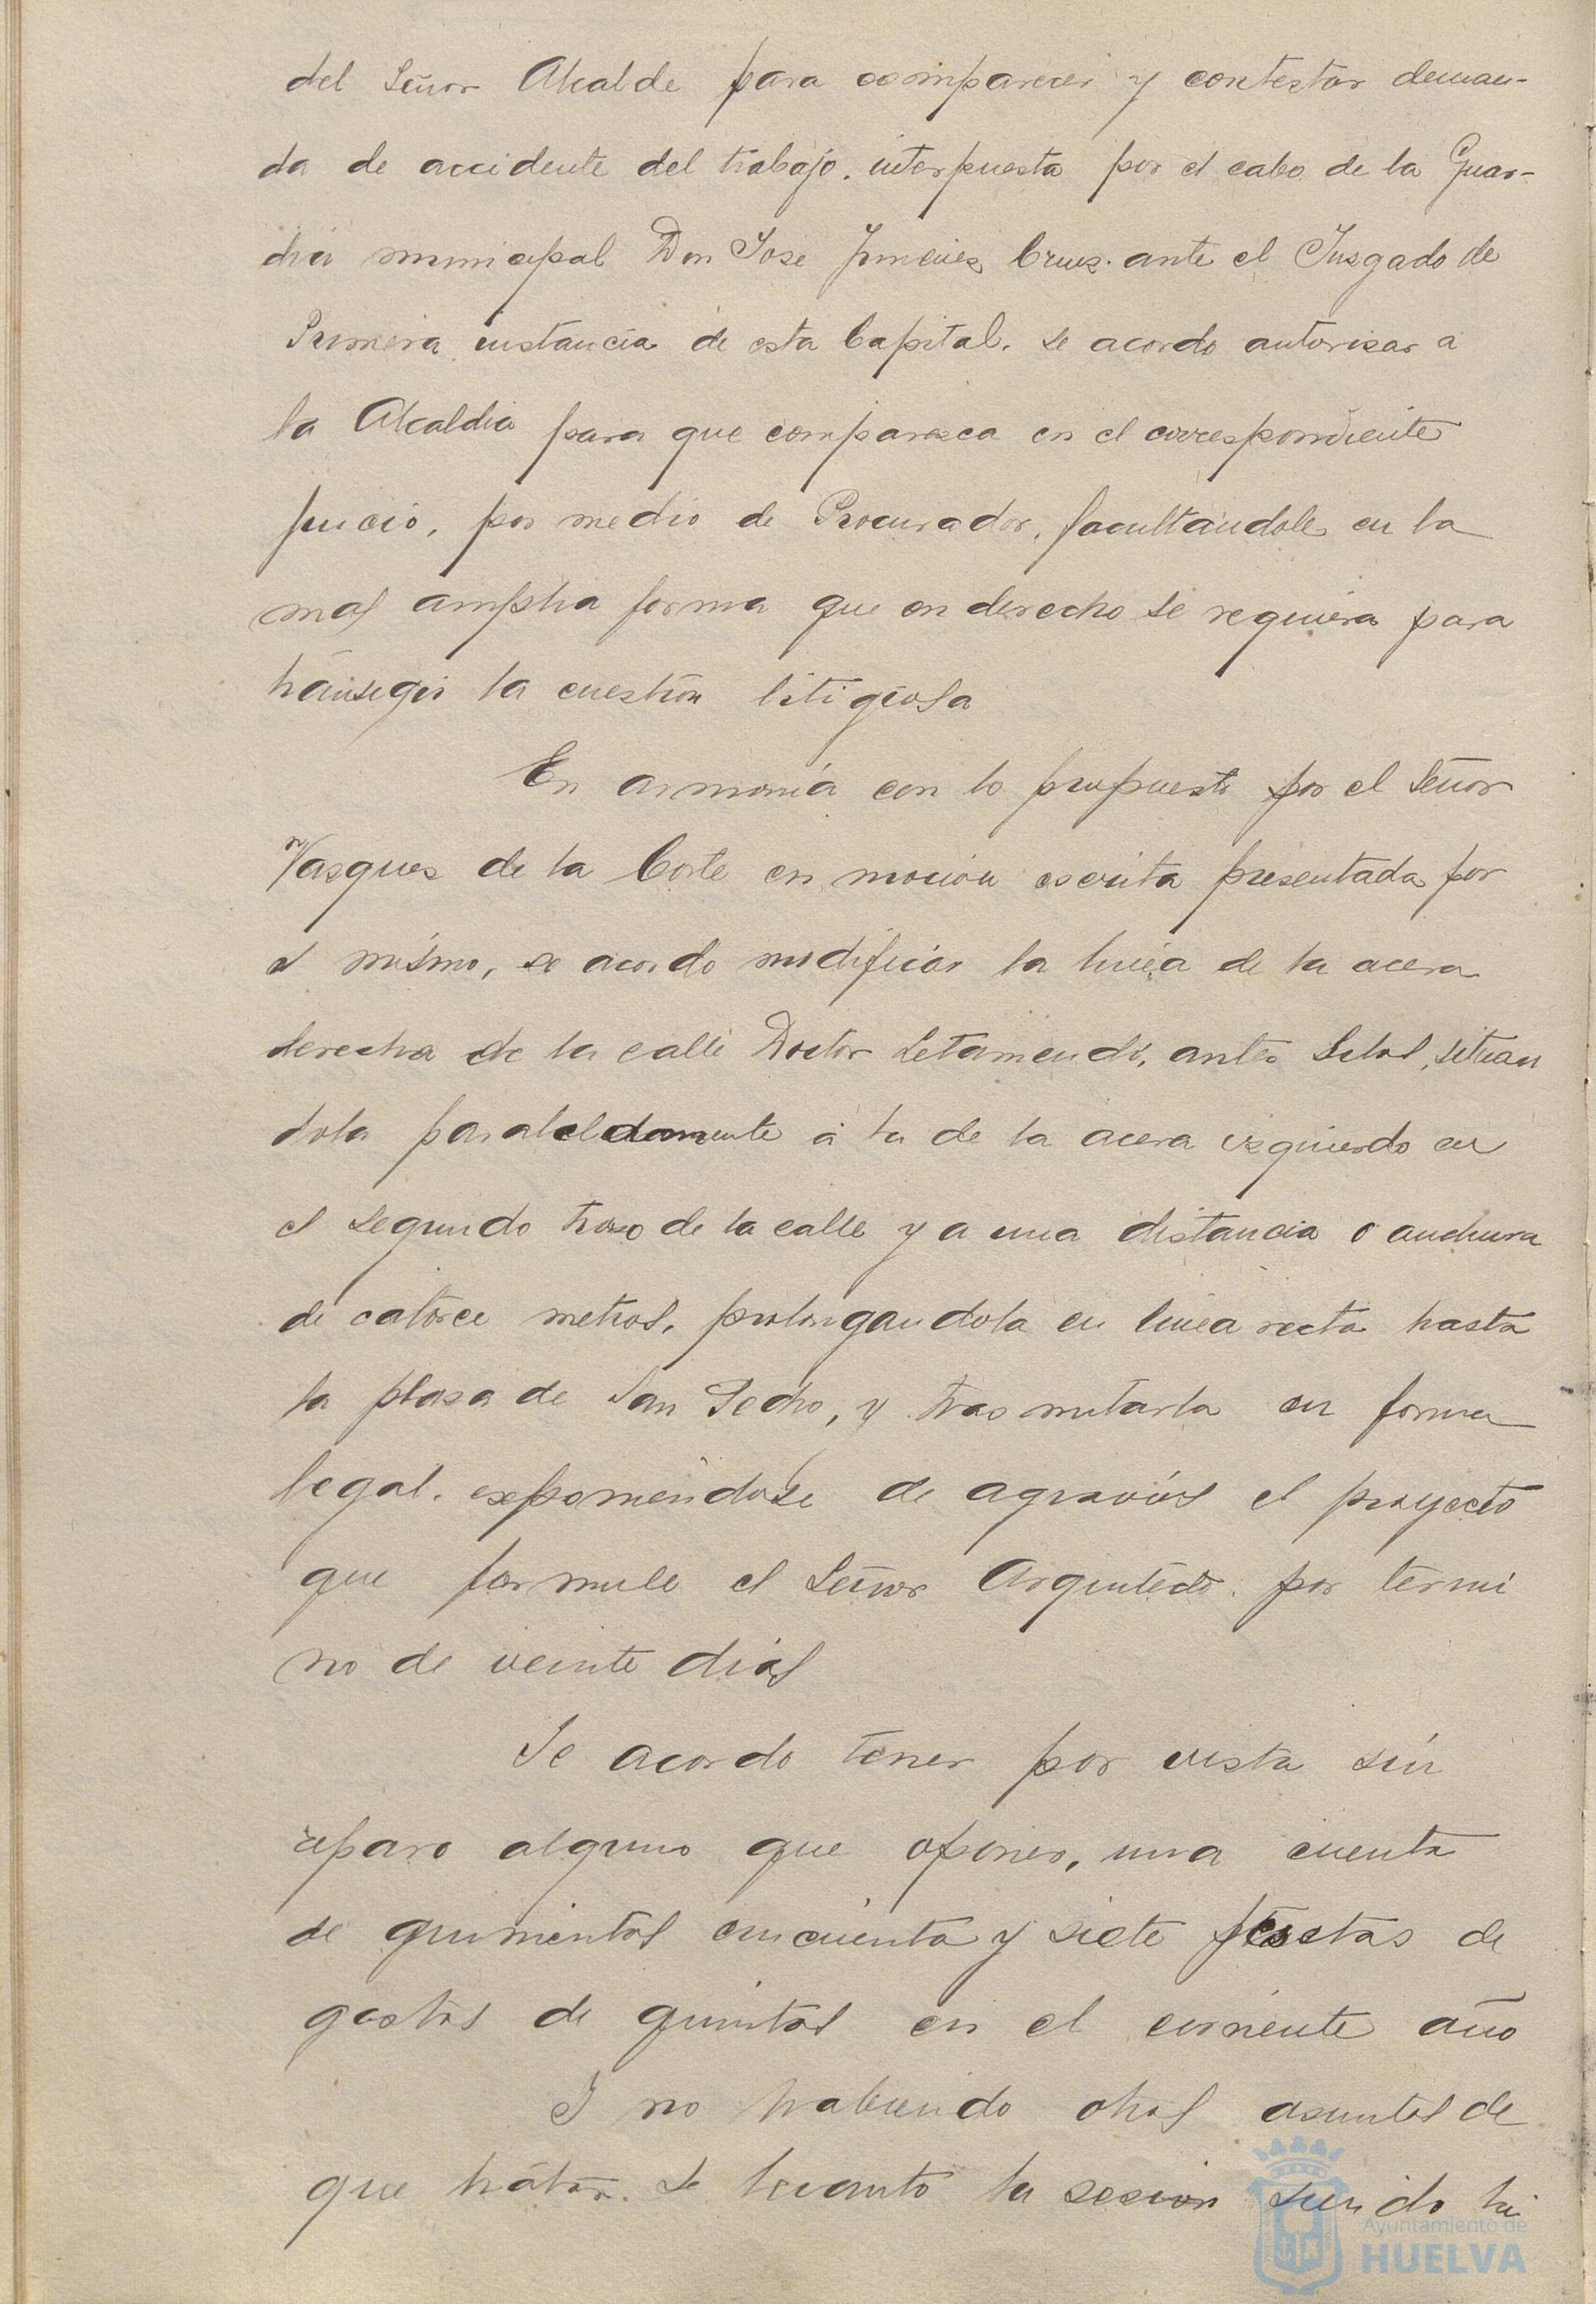 del Señor Alcalde para comparecer y contestar deman-
da de accidente del trabajo, interpuesta por el cabo de la Guar-
dia municipal Don Jose Jimenez Cruz. ante el Jusgado de
Primera instancia de esta Capital. se acordo autorisar a
la Alcaldia para que comparesca en el correspondiente
juicio, por medio de Procurador, facultandole en la
mas amplia forma que en derecho se requiera para
transegir la cuestion litigiosa
En armonia con lo propuesto por el Señor
Vasques de la Corte en mocion escrita presentada por
el mismo, se acordo modificar la linea de la acera
derecha de la calle Doctor Letamendi, antes situan
dola paraleldamente a la de la acera izquierda en
el segundo troso de la calle y a una distancia o anchura
de catorce metros, prolongandola en linea recta hasta
la plasa de San Pedro, y trasmitarla en forma
legal. exponiendose de agravios el proyecto
que formule el Señor Arquitecto. por termi
no de veinte dias
Se acordo tener por vista sin
reparo alguno que oponer, una cuenta
de quinientas cincuenta y siete pesetas de
gastos de quintas en el corriente año
I no habiendo otros asuntos de
que tratar. se levanto la sesion siendo la
Ayuntamiento de
HUELVA